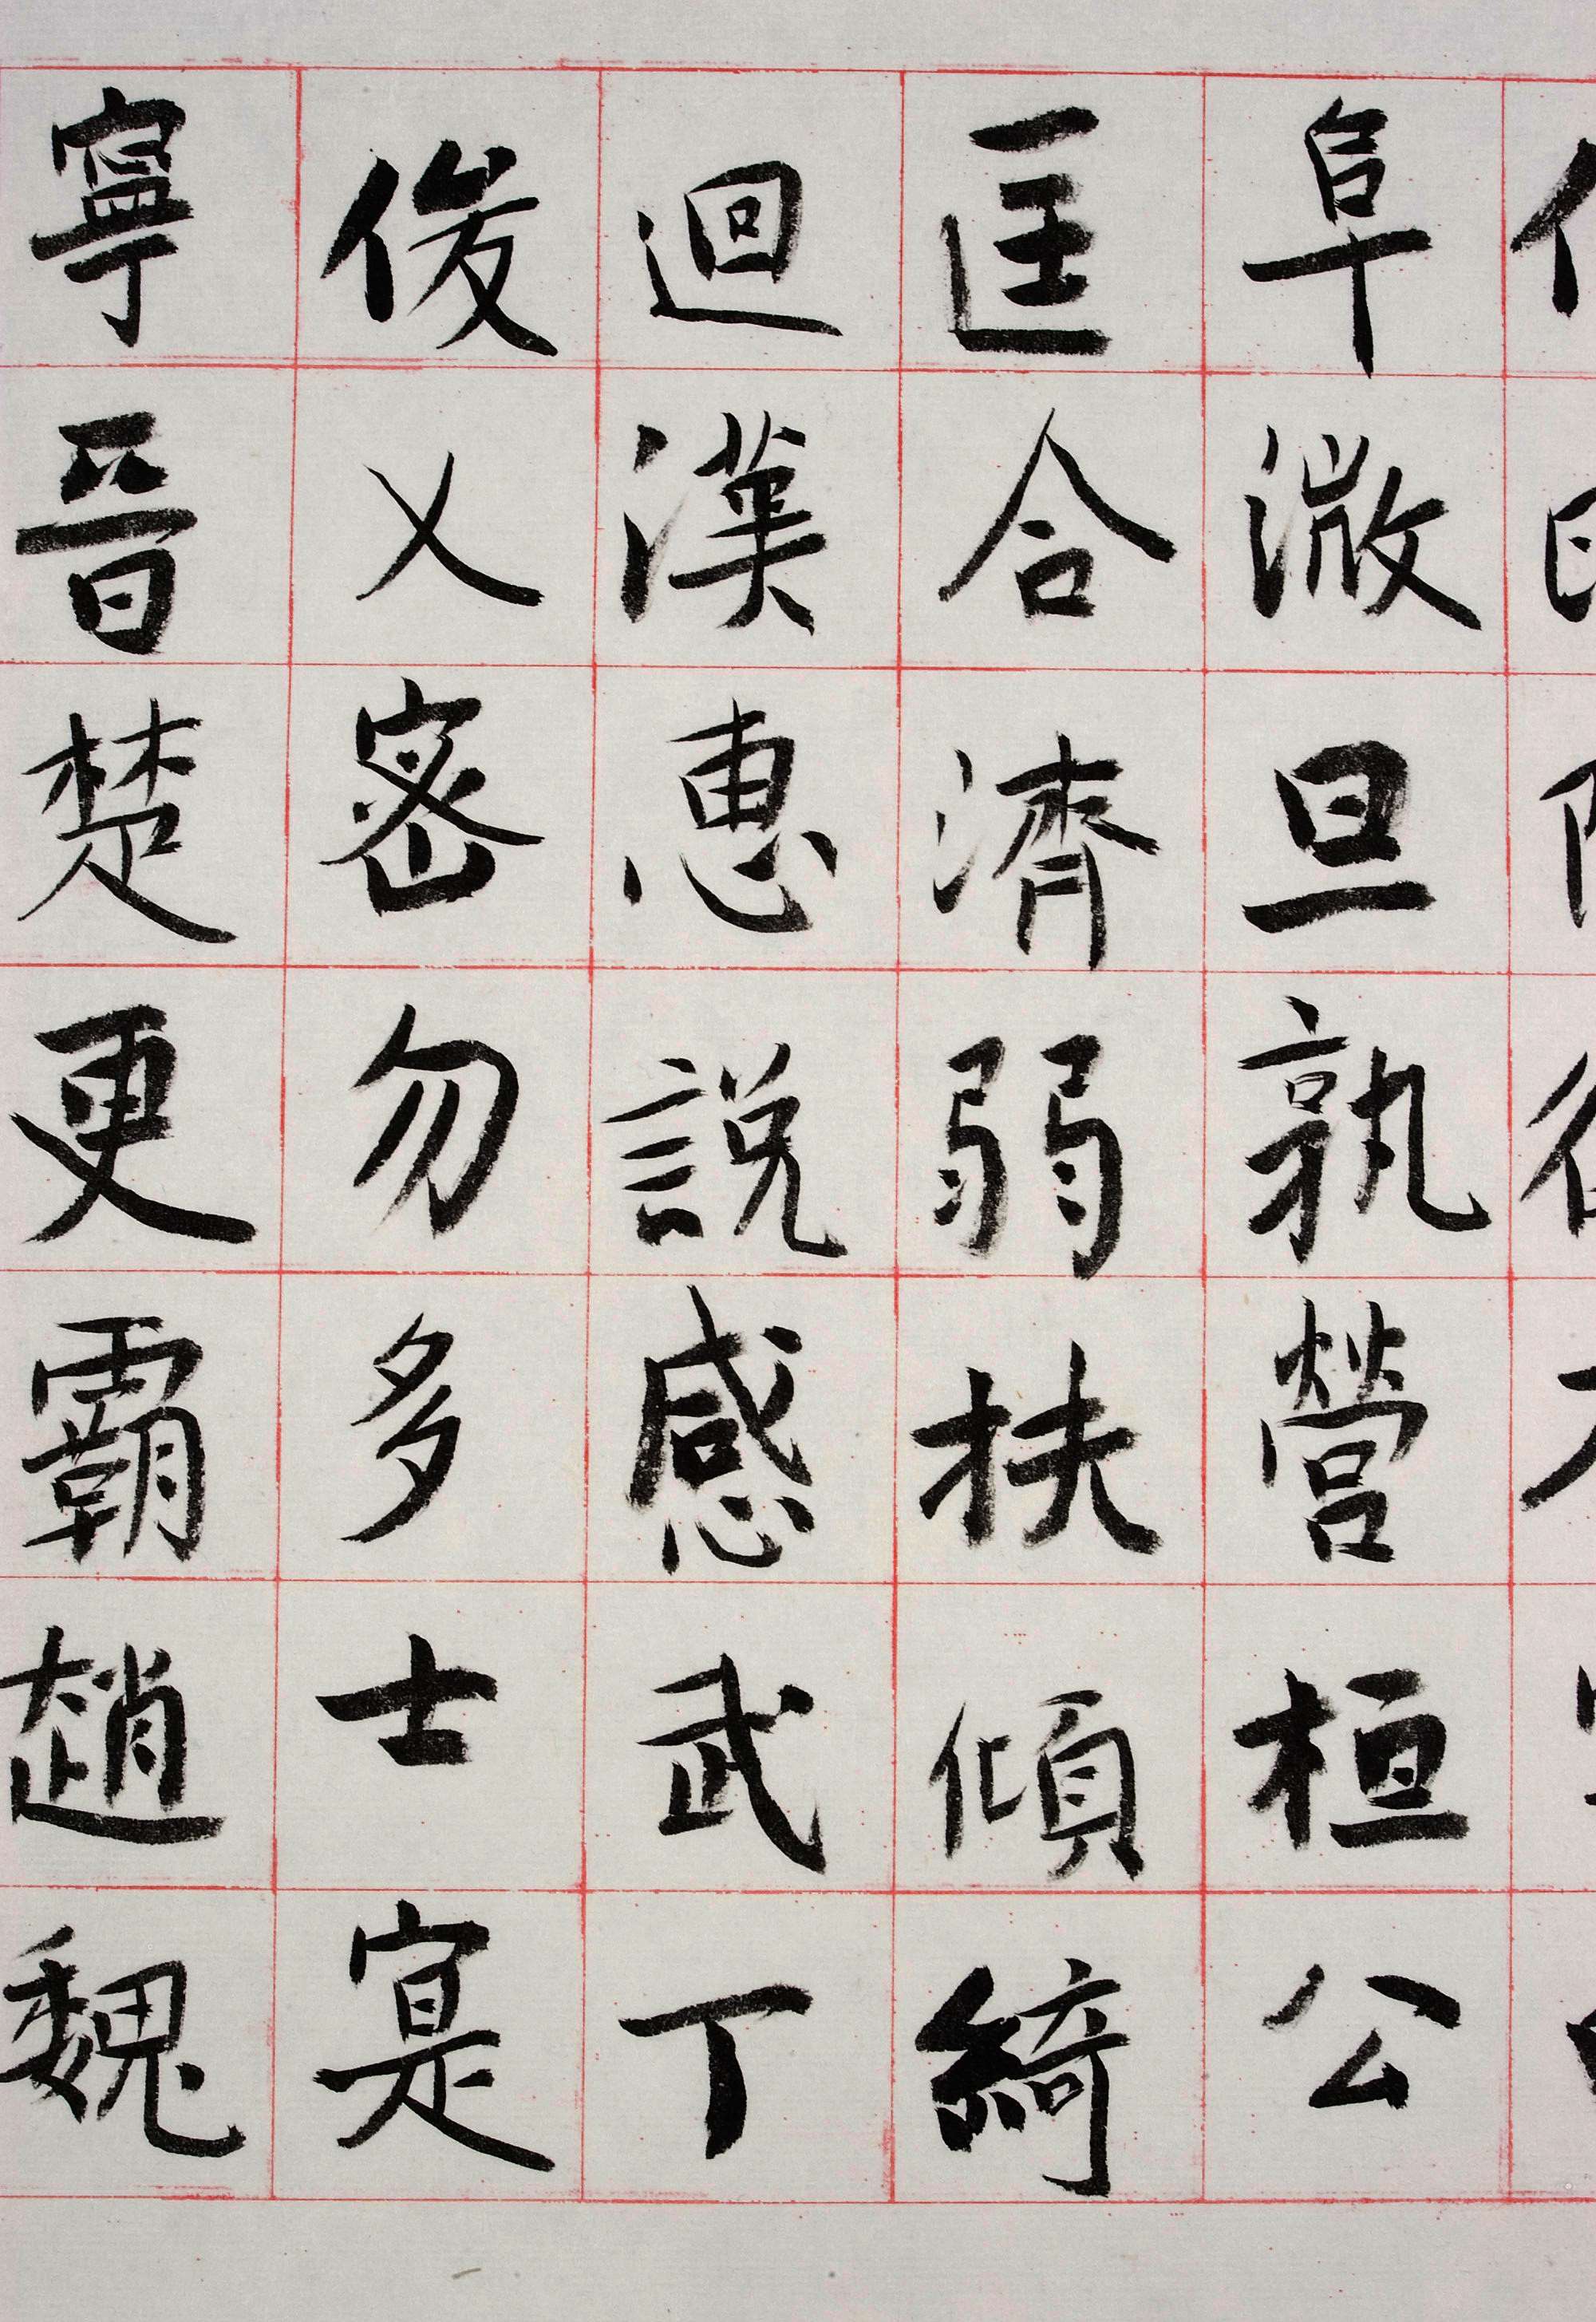 阜微旦孰營桓公
匡合濟弱扶傾綺
迴漢惠說感武丁
俊乂密勿多士寔
寧晉楚更霸趙魏